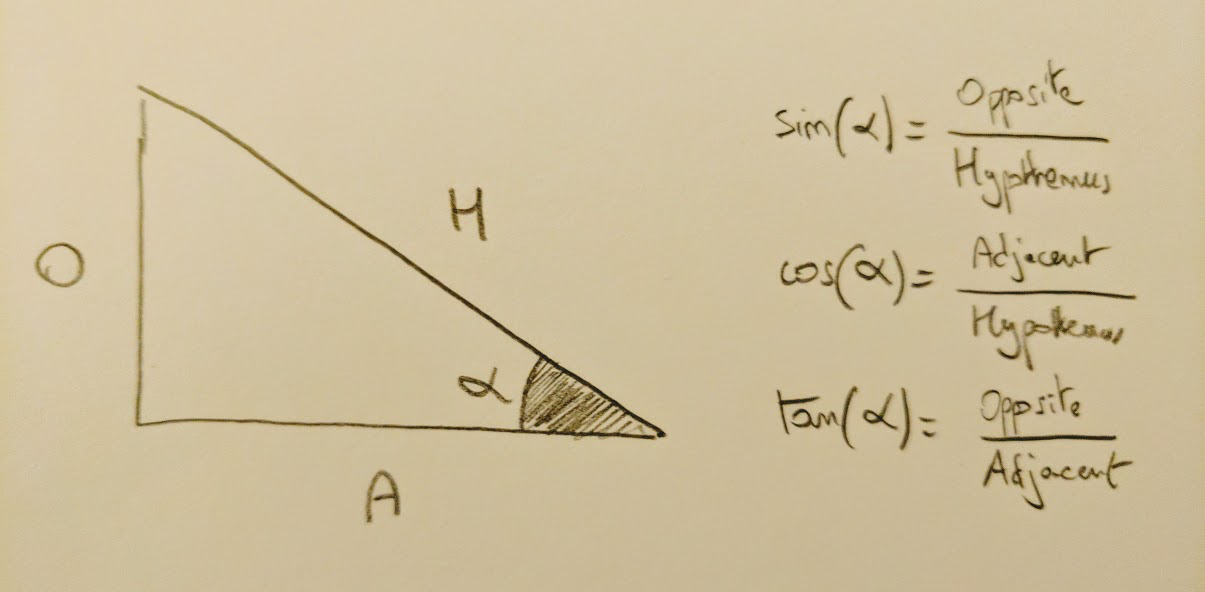 O
H
α
A
sin(α) = Opposite
Hypothenus
cos(α) = Adjacent
Hypothenus
tan(α) = Opposite
Adjacent